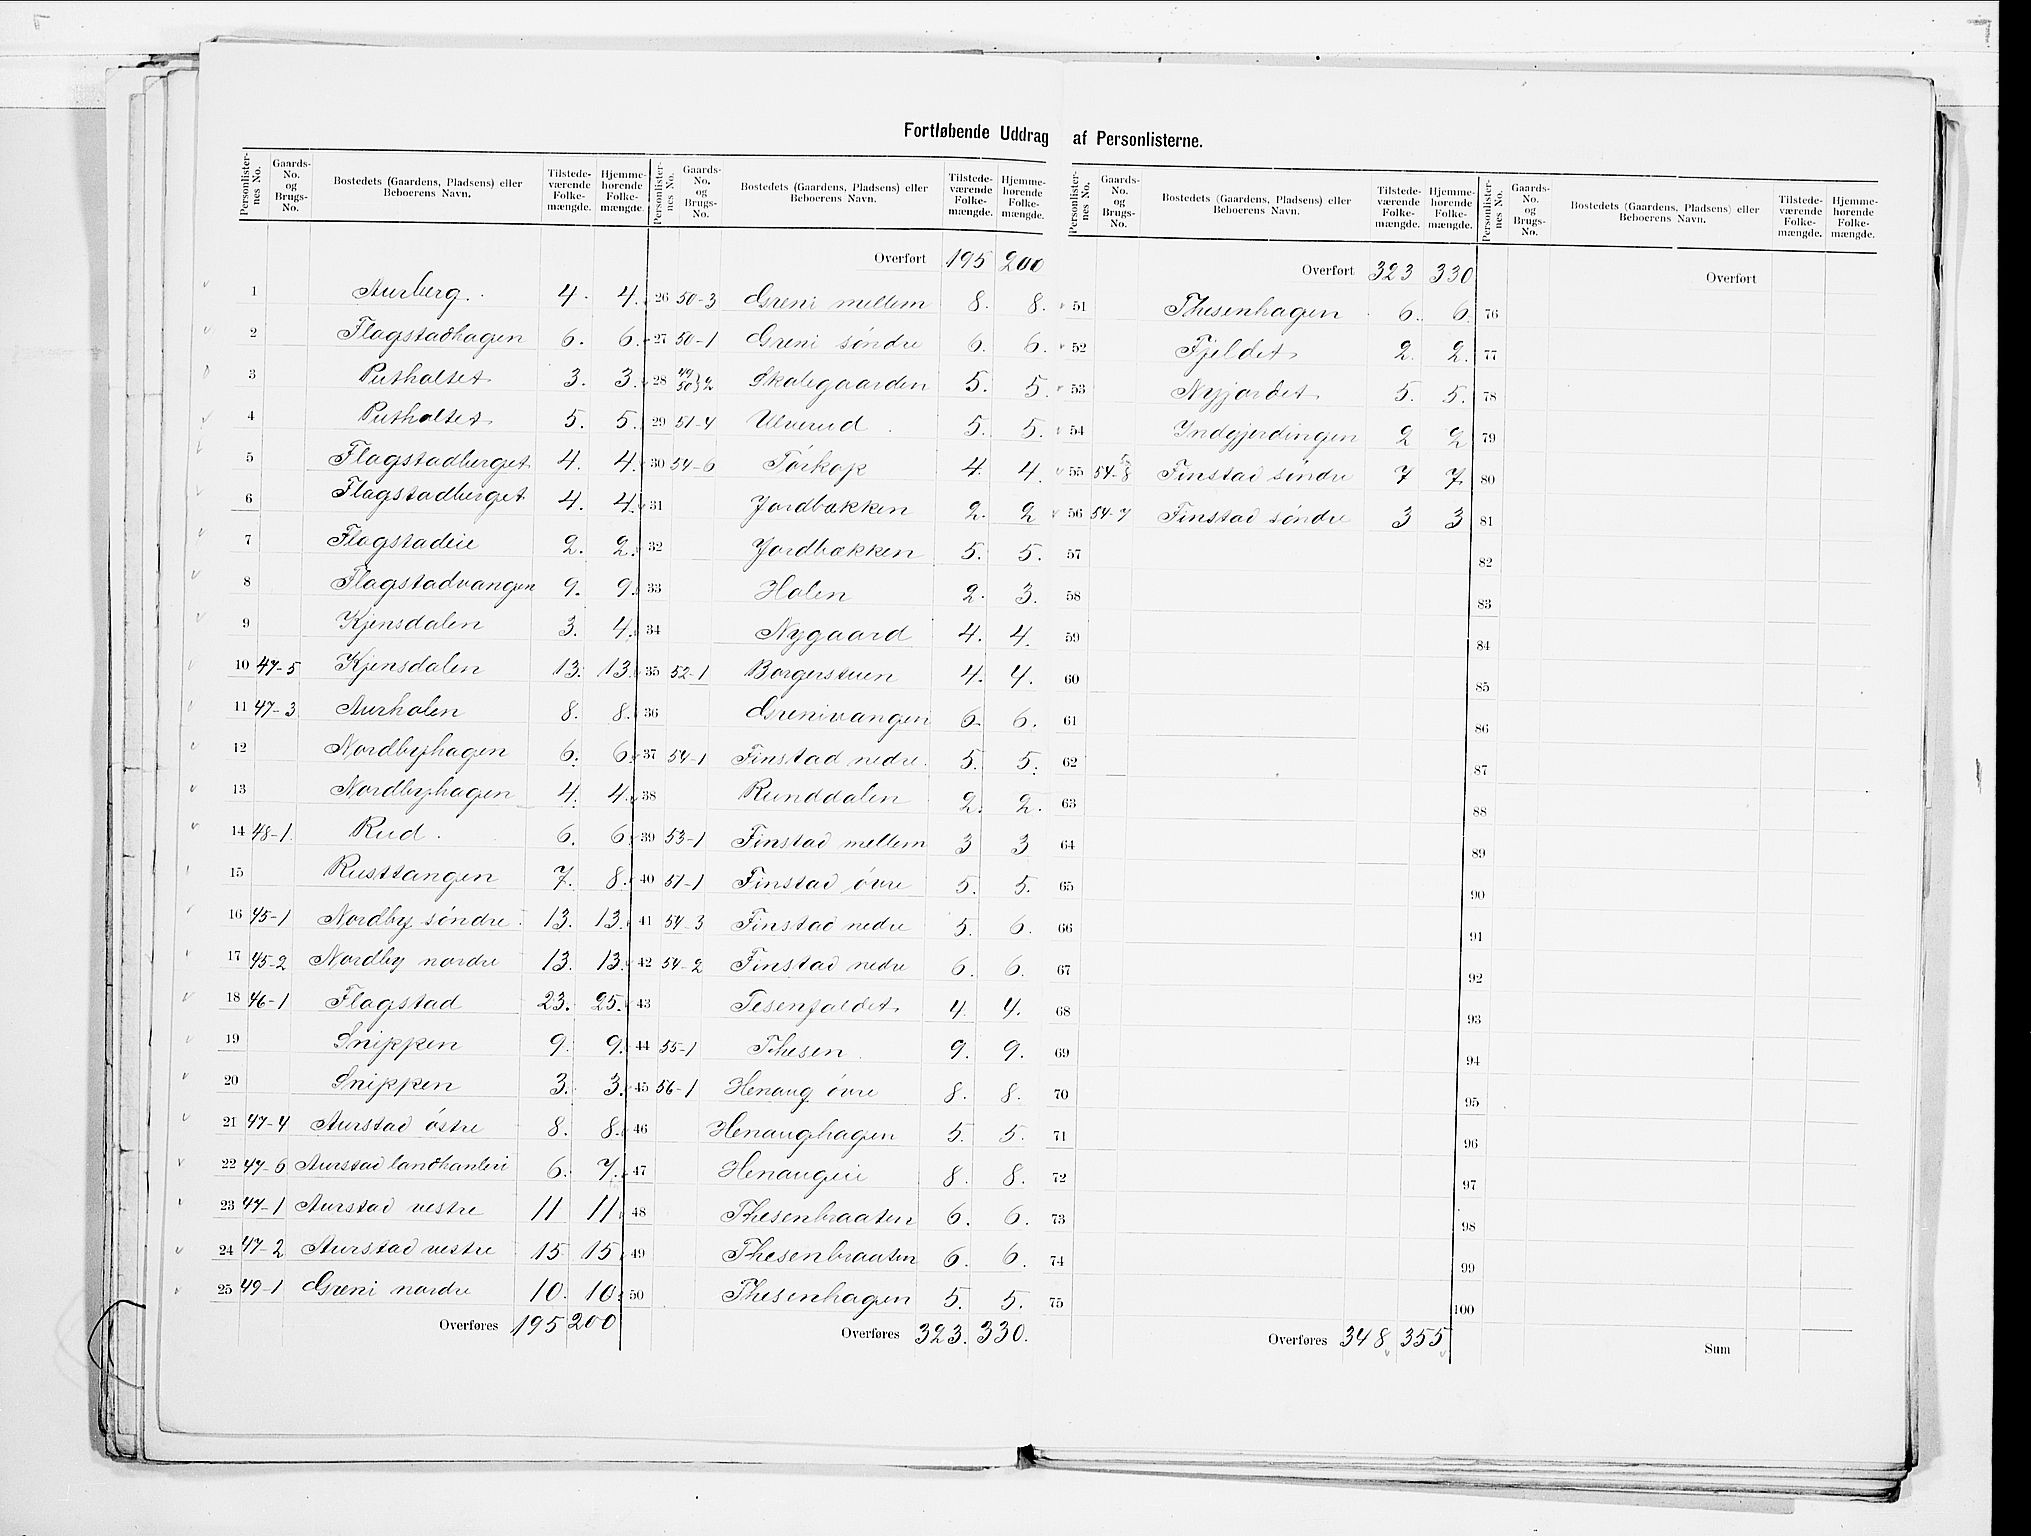 Fortløbende Uddrag af Personlisterne.
Personlister-nes No. Gaards-No. og Brugs-No. Bostedets (Gaardens, Pladsens) eller Beboerens Navn. Tilstede-værende Folke-mængde. Hjemme-hørende Folke-mængde.
1 Aurberg. 4. 4.
2 Flagstadhagen 6. 6.
3 Putholtet 3. 3.
4 Putholtet 5. 5.
5 Flagstadberget 4. 4.
6 Flagstadberget 4. 4.
7 Flagstadeie 2. 2.
8 Flagstadvangen 9. 9.
9 Kjensdalen 3. 4.
10 47-5 Kjensdalen 13. 13.
11 47-3 Aurholen 8. 8.
12 Nordbyhagen 6. 6.
13 Nordbyhagen 4. 4.
14 48-1. Rud. 6. 6.
15 Rusttangen 7. 8.
16 45-1 Nordby søndre. 13. 13.
17 45-2 Nordby nordre 13. 13.
18 46-1 Flagstad 23. 25.
19 Snippen 9. 9.
20 Snippen 3. 3.
21 47-4 Aurstad østre 8. 8.
22 47-6 Aurstad landhanleri 6. 7.
23 47-1 Aurstad vestre 11 11.
24 47-2 Aurstad vestre 15 15
25 49-1 Greni nordre 10. 10.
Overføres 195 200
Personlister-nes No. Gaards-No. og Brugs-No. Bostedets (Gaardens, Pladsens) eller Beboerens Navn. Tilstede-værende Folke-mængde. Hjemme-hørende Folke-mængde.
Overført 195 200
26 50-3 Greni mellem 8. 8.
27 50-1 Greni søndre 6. 6.
28 49/50}2 Skolegaarden 5. 5.
29 51-4 Ulverud. 5. 5.
30 54-6 Torkop 4. 4.
31 Jordbækken 2. 2
32 Jordbækken 5. 5.
33 Holen 2. 3.
34 Nygaard 4. 4.
35 52-1 Borgerstuen 4. 4.
36 Grenivangen 6. 6.
37 54-1 Finstad nedre. 5. 5.
38 Runddalen 2. 2.
39 53-1 Finstad mellem 3 3
40 51-1 Finstad øvre 5. 5.
41 54-3 Finstad nedre 5. 6.
42 54-2 Finstad nedre 6. 6.
43 Tesenfaldet 4. 4.
44 55-1 Thesen. 9. 9.
45 56-1 Henaug øvre 8. 8.
46 Henaughagen 5. 5.
47 Henaugeie 8. 8.
48 Thesenbraaten 6. 6.
49 Thesenbraaten 6. 6.
50 Thesenhagen 5. 5.
Overføres 323. 330.
Personlister-nes No. Gaards-No. og Brugs-No. Bostedets (Gaardens, Pladsens) eller Beboerens Navn. Tilstede-værende Folke-mængde. Hjemme-hørende Folke-mængde.
Overført 323 330
51 Thesenhagen 6. 6.
52 Fjeldet 2. 2.
53 Nyjordet 5. 5.
54 Indgjerdingen 2 2
55 54-5/8 Finstad søndre 7 7
56 54-7 Finstad søndre 3 3
57
58
59
60
61
62
63
64
65
66
67
68
69
70
71
72
73
74
75
Overføres 348 355
Personlister-nes No. Gaards-No. og Brugs-No. Bostedets (Gaardens, Pladsens) eller Beboerens Navn. Tilstede-værende Folke-mængde. Hjemme-hørende Folke-mængde.
Overført
76
77
78
79
80
81
82
83
84
85
86
87
88
89
90
91
92
93
94
95
96
97
98
99
100
Sum